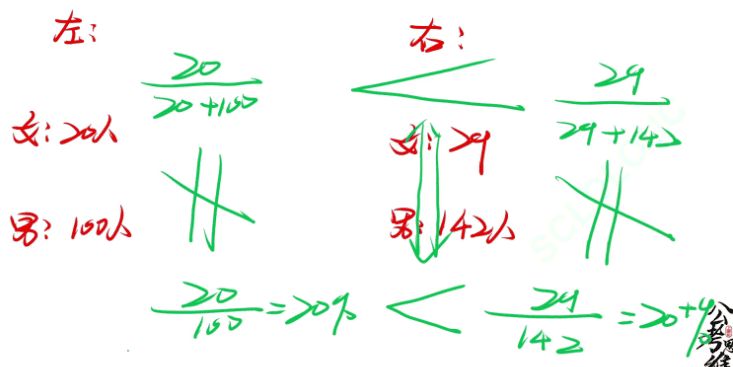 左： 右：
20/20+100 < 29/29+142
女：20人 女：29
男：100人 男：142人
20/100=20% < 29/142=20+%
公考思维